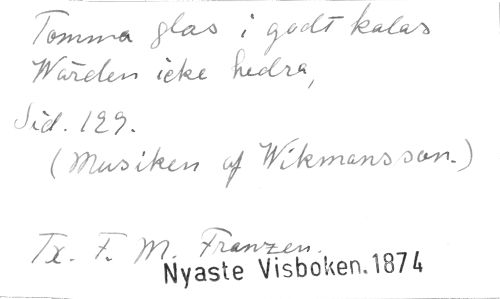 Tomma glas i godt kalas
Wärden icke hedra,
Sid. 129.
(Musiken af Wikmansson.)
Tx. F. M. Franzen.
Nyaste Visboken. 1874